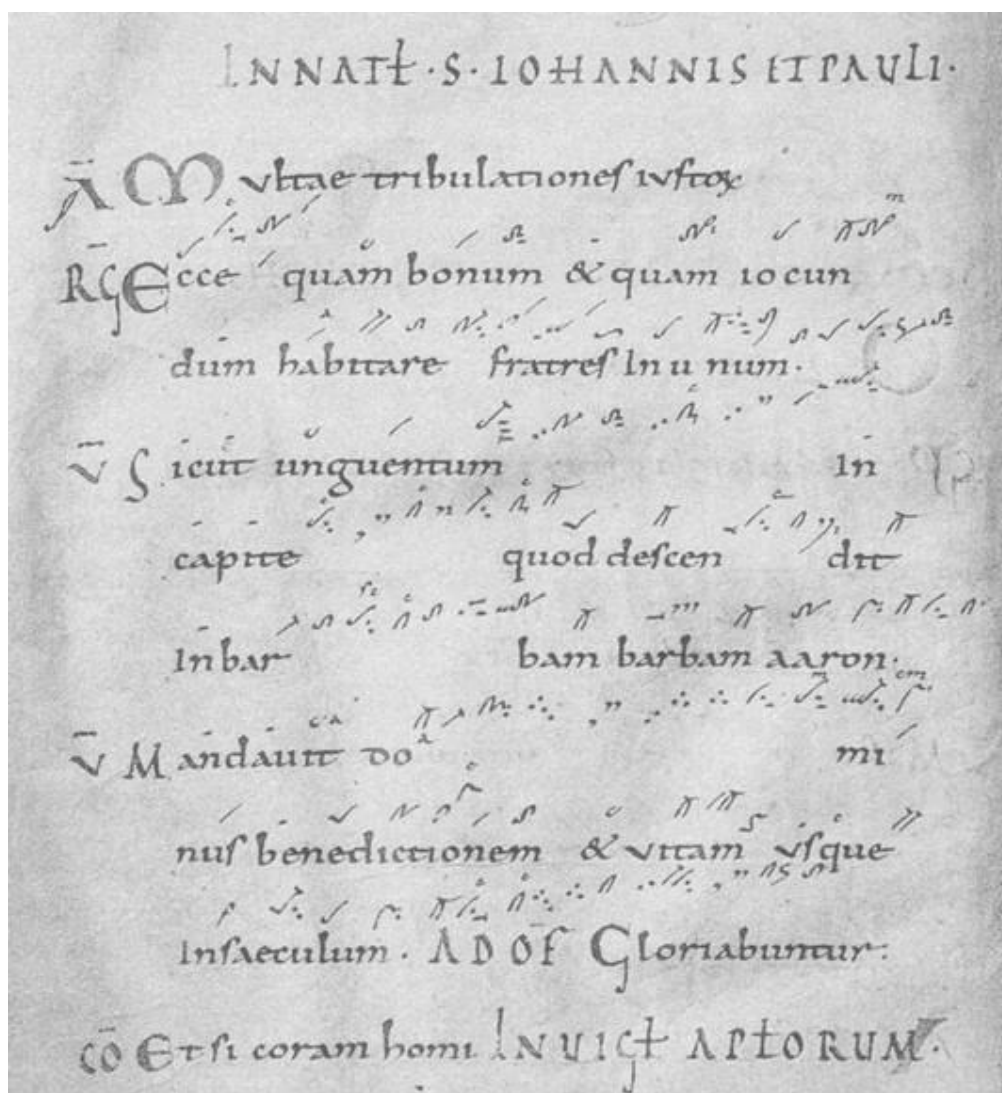 INNATƚ·S·IOHANNIS ETPAULI·
Ā Multae tribulationeſ iuſtoꝝ
RG Ecce quam bonum & quam iocun
dum habitare fratreſ In unum·
V̄ Sicut unguentum In
capite quod deſcen dit
In bar bam barbam aaron·
V̄ Mandauit do mi
nuſ benedictionem & uitam uſque
Inſaeculum· AD OF̄ Gloriabuntur:
CŌ Et si coram homi INUIGƚ APƚORUM·